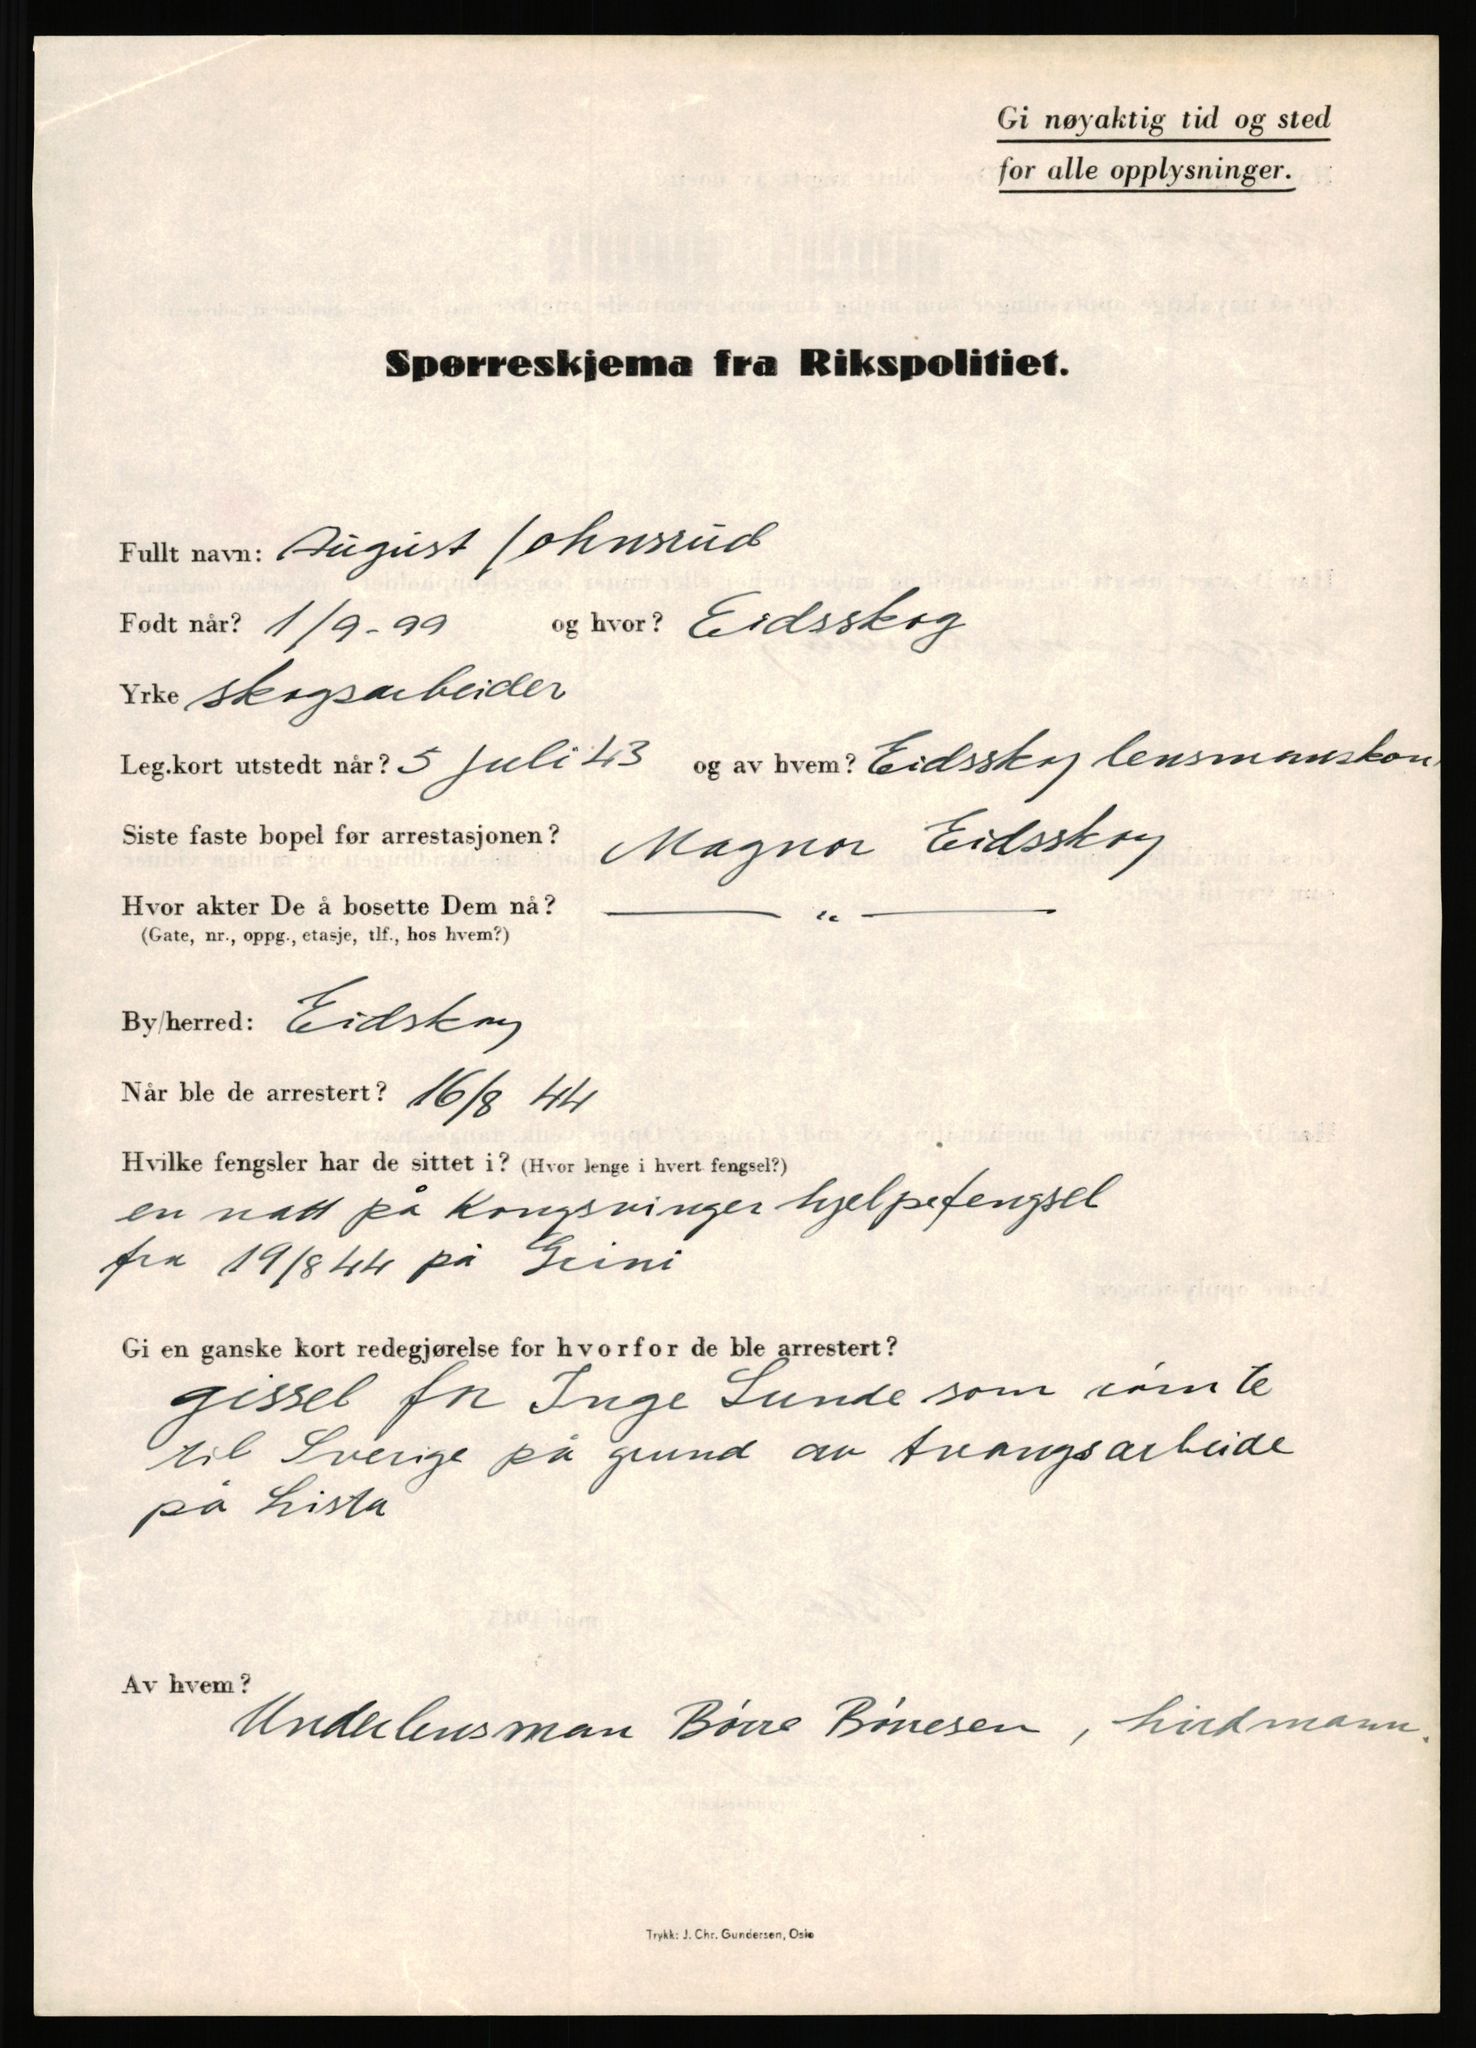 Gi nøyaktig tid og sted
for alle opplysninger.
Spørreskjema fra Rikspolitiet.
Fullt navn: August Johnsrud
Født når? 1/9-99 og hvor? Eidsskog
Yrke skogsarbeider
Leg.kort utstedt når? 5 juli 43 og av hvem? Eidsskog lensmanskon.
Siste faste bopel før arrestasjonen? Magnor Eidsskog
Hvor akter De å bosette Dem nå? — " —
(Gate, nr., oppg., etasje, tlf., hos hvem?)
By/herred: Eidskog
Når ble de arrestert? 16/8 44
Hvilke fengsler har de sittet i? (Hvor lenge i hvert fengsel?)
en natt på Kongsvinger hjelpefengsel
fra 19/8 44 på Grini
Gi en ganske kort redegjørelse for hvorfor de ble arrestert?
gissel for Inge Lunde som rømte
til Sverige på grund av tvangsarbeide
på Lista
Av hvem?
Underlensman Børre Børresen, hirdmann.
Trykk: J. Chr. Gundersen, Oslo